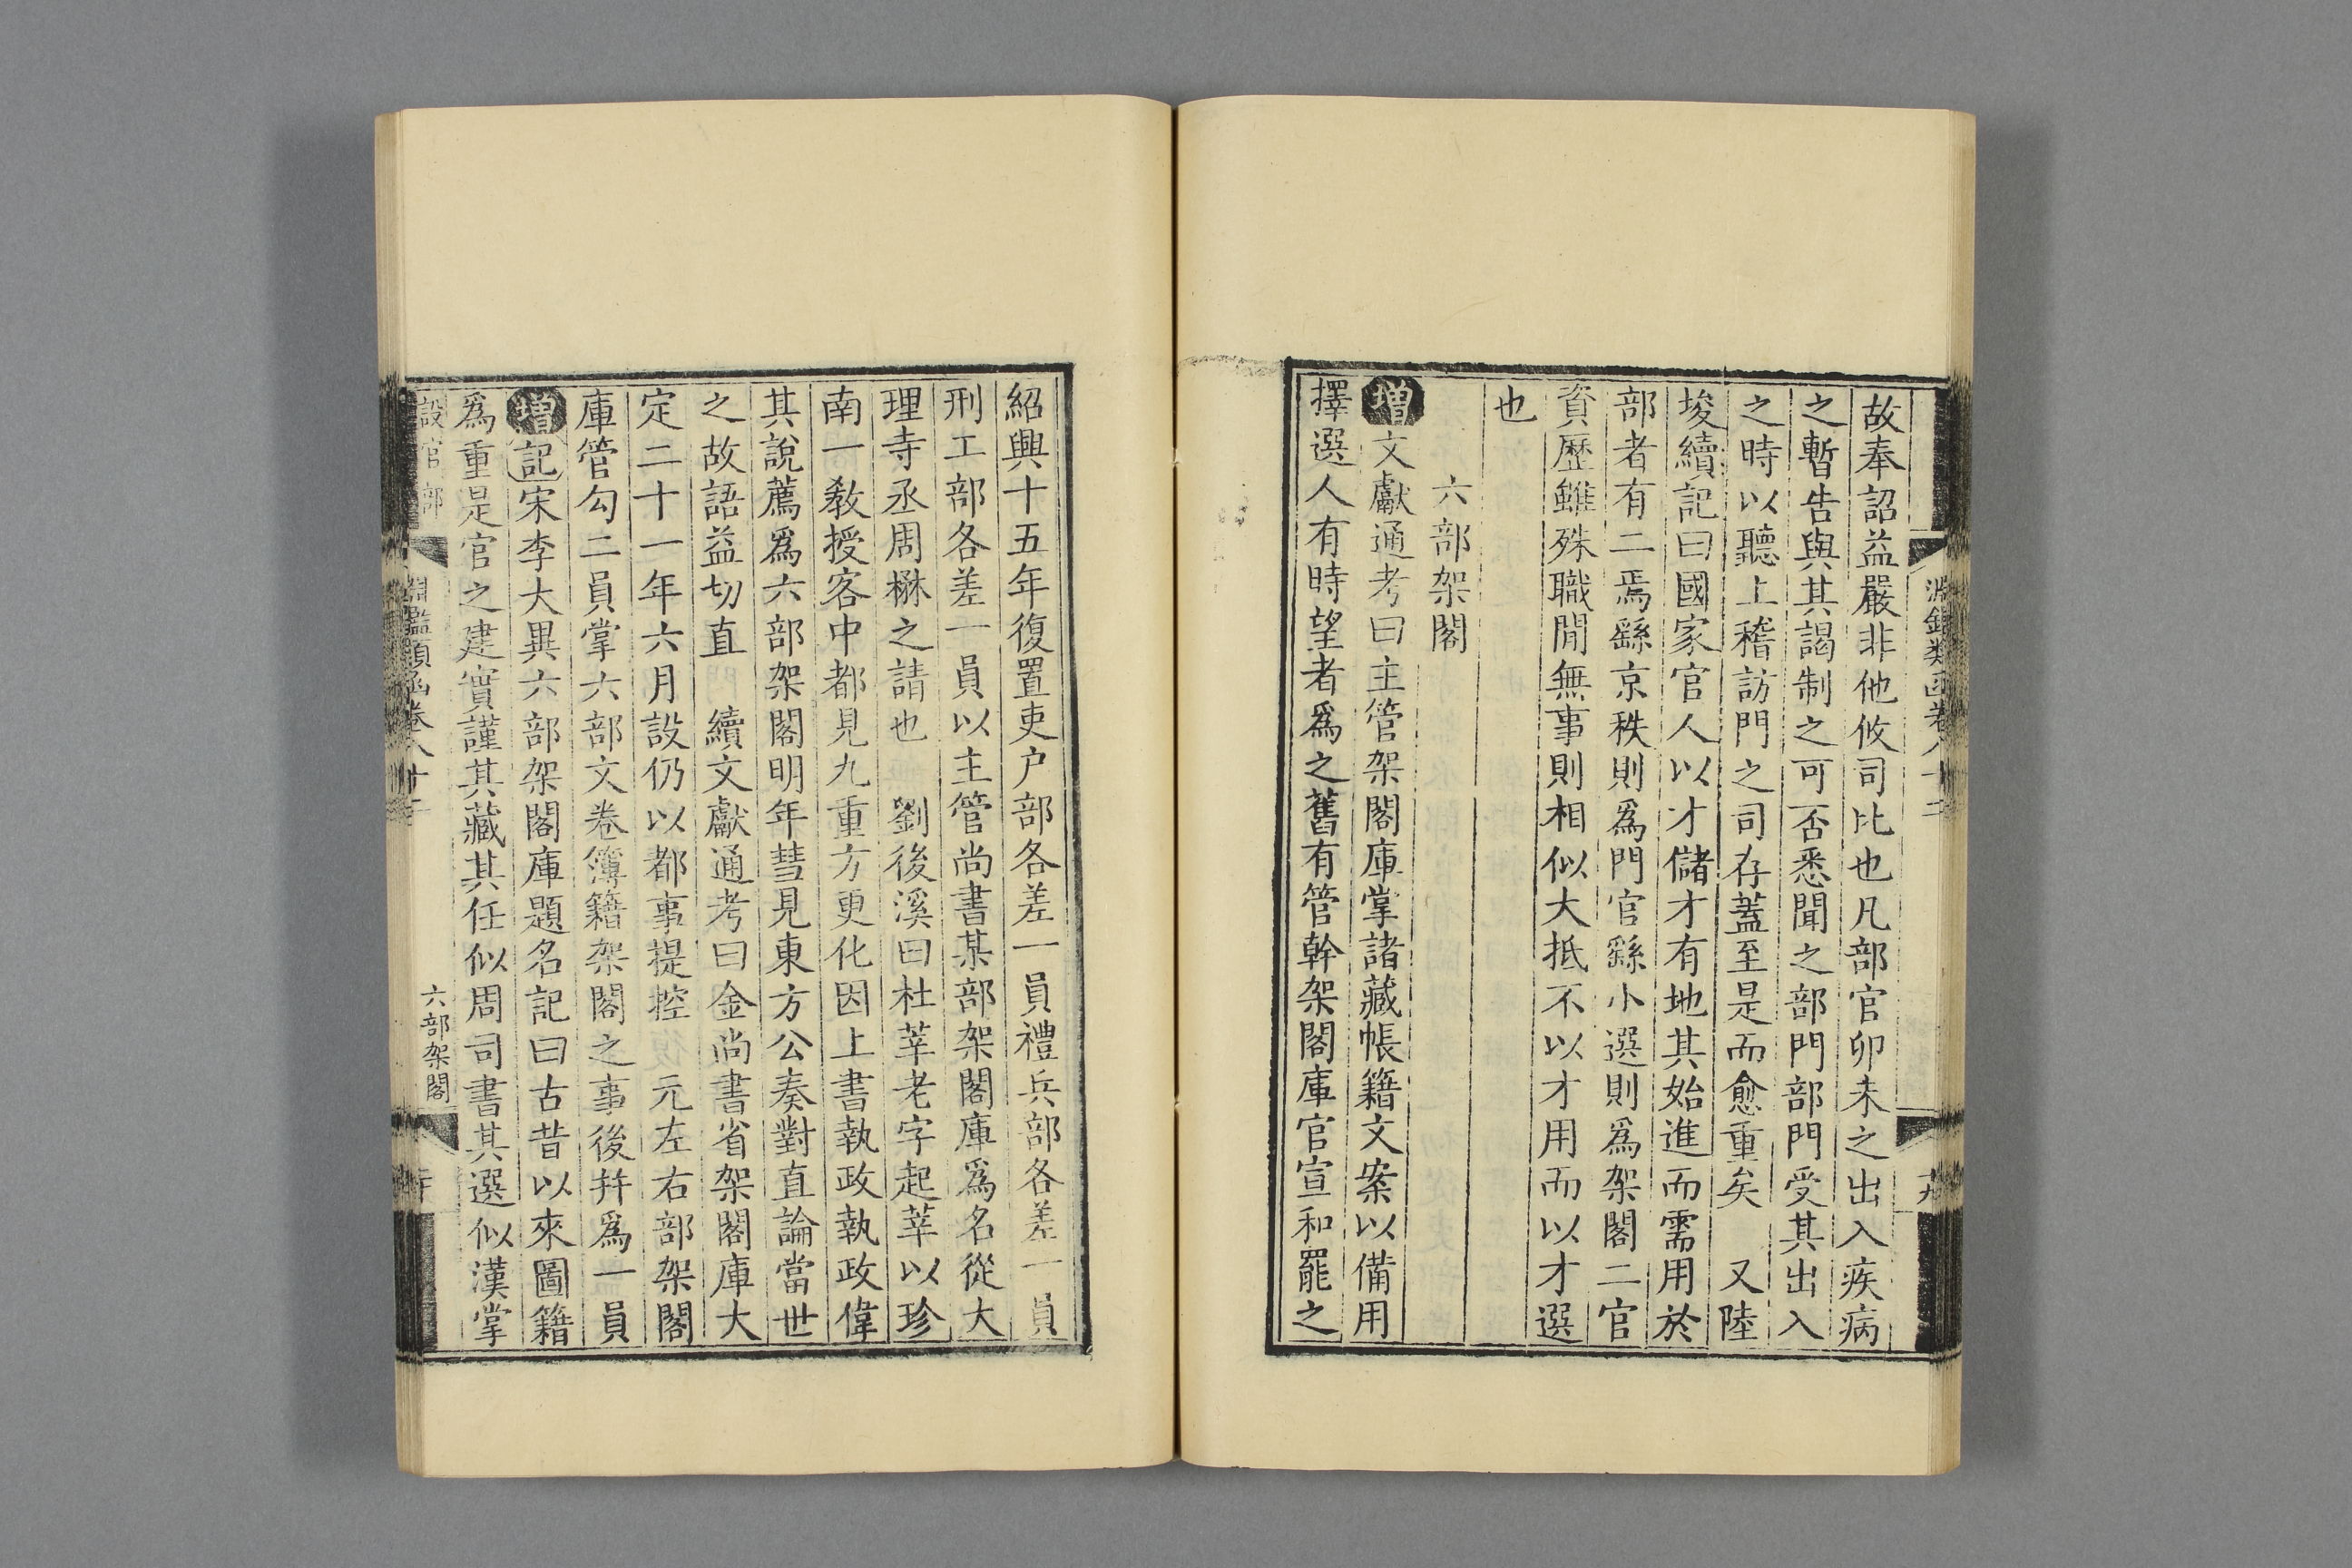 淵鑑類函卷八十二
十九
故奉詔益嚴非他攸司比也凡部官卯未之出入疾病
之暫告與其謁制之可否悉聞之部門部門受其出入
之時以聽上稽訪門之司存蓋至是而愈重矣 又陸
埈續記曰國家官人以才儲才有地其始進而需用於
部者有二焉繇京秩則爲門官繇小選則爲架閣二官
資歷雖殊職閒無事則相似大抵不以才用而以才選
也
六部架閣
增文獻通考曰主管架閣庫掌諸藏帳籍文案以備用
擇選人有時望者爲之舊有管幹架閣庫官宣和罷之
紹興十五年復置吏户部各差一員禮兵部各差一員
刑工部各差一員以主管尚書某部架閣庫爲名從大
理寺丞周楙之請也 劉後溪曰杜莘老字起莘以珍
南一教授客中都見九重方更化因上書執政執政偉
其說薦爲六部架閣明年彗見東方公奏對直論當世
之故語益切直 續文獻通考曰金尚書省架閣庫大
定二十一年六月設仍以都事提控 元左右部架閣
庫管勾二員掌六部文卷簿籍架閣之事後幷爲一員
增記宋李大異六部架閣庫題名記曰古昔以來圖籍
爲重是官之建實謹其藏其任似周司書其選似漢掌
設官部
淵鑑類函卷八十二
六部架閣